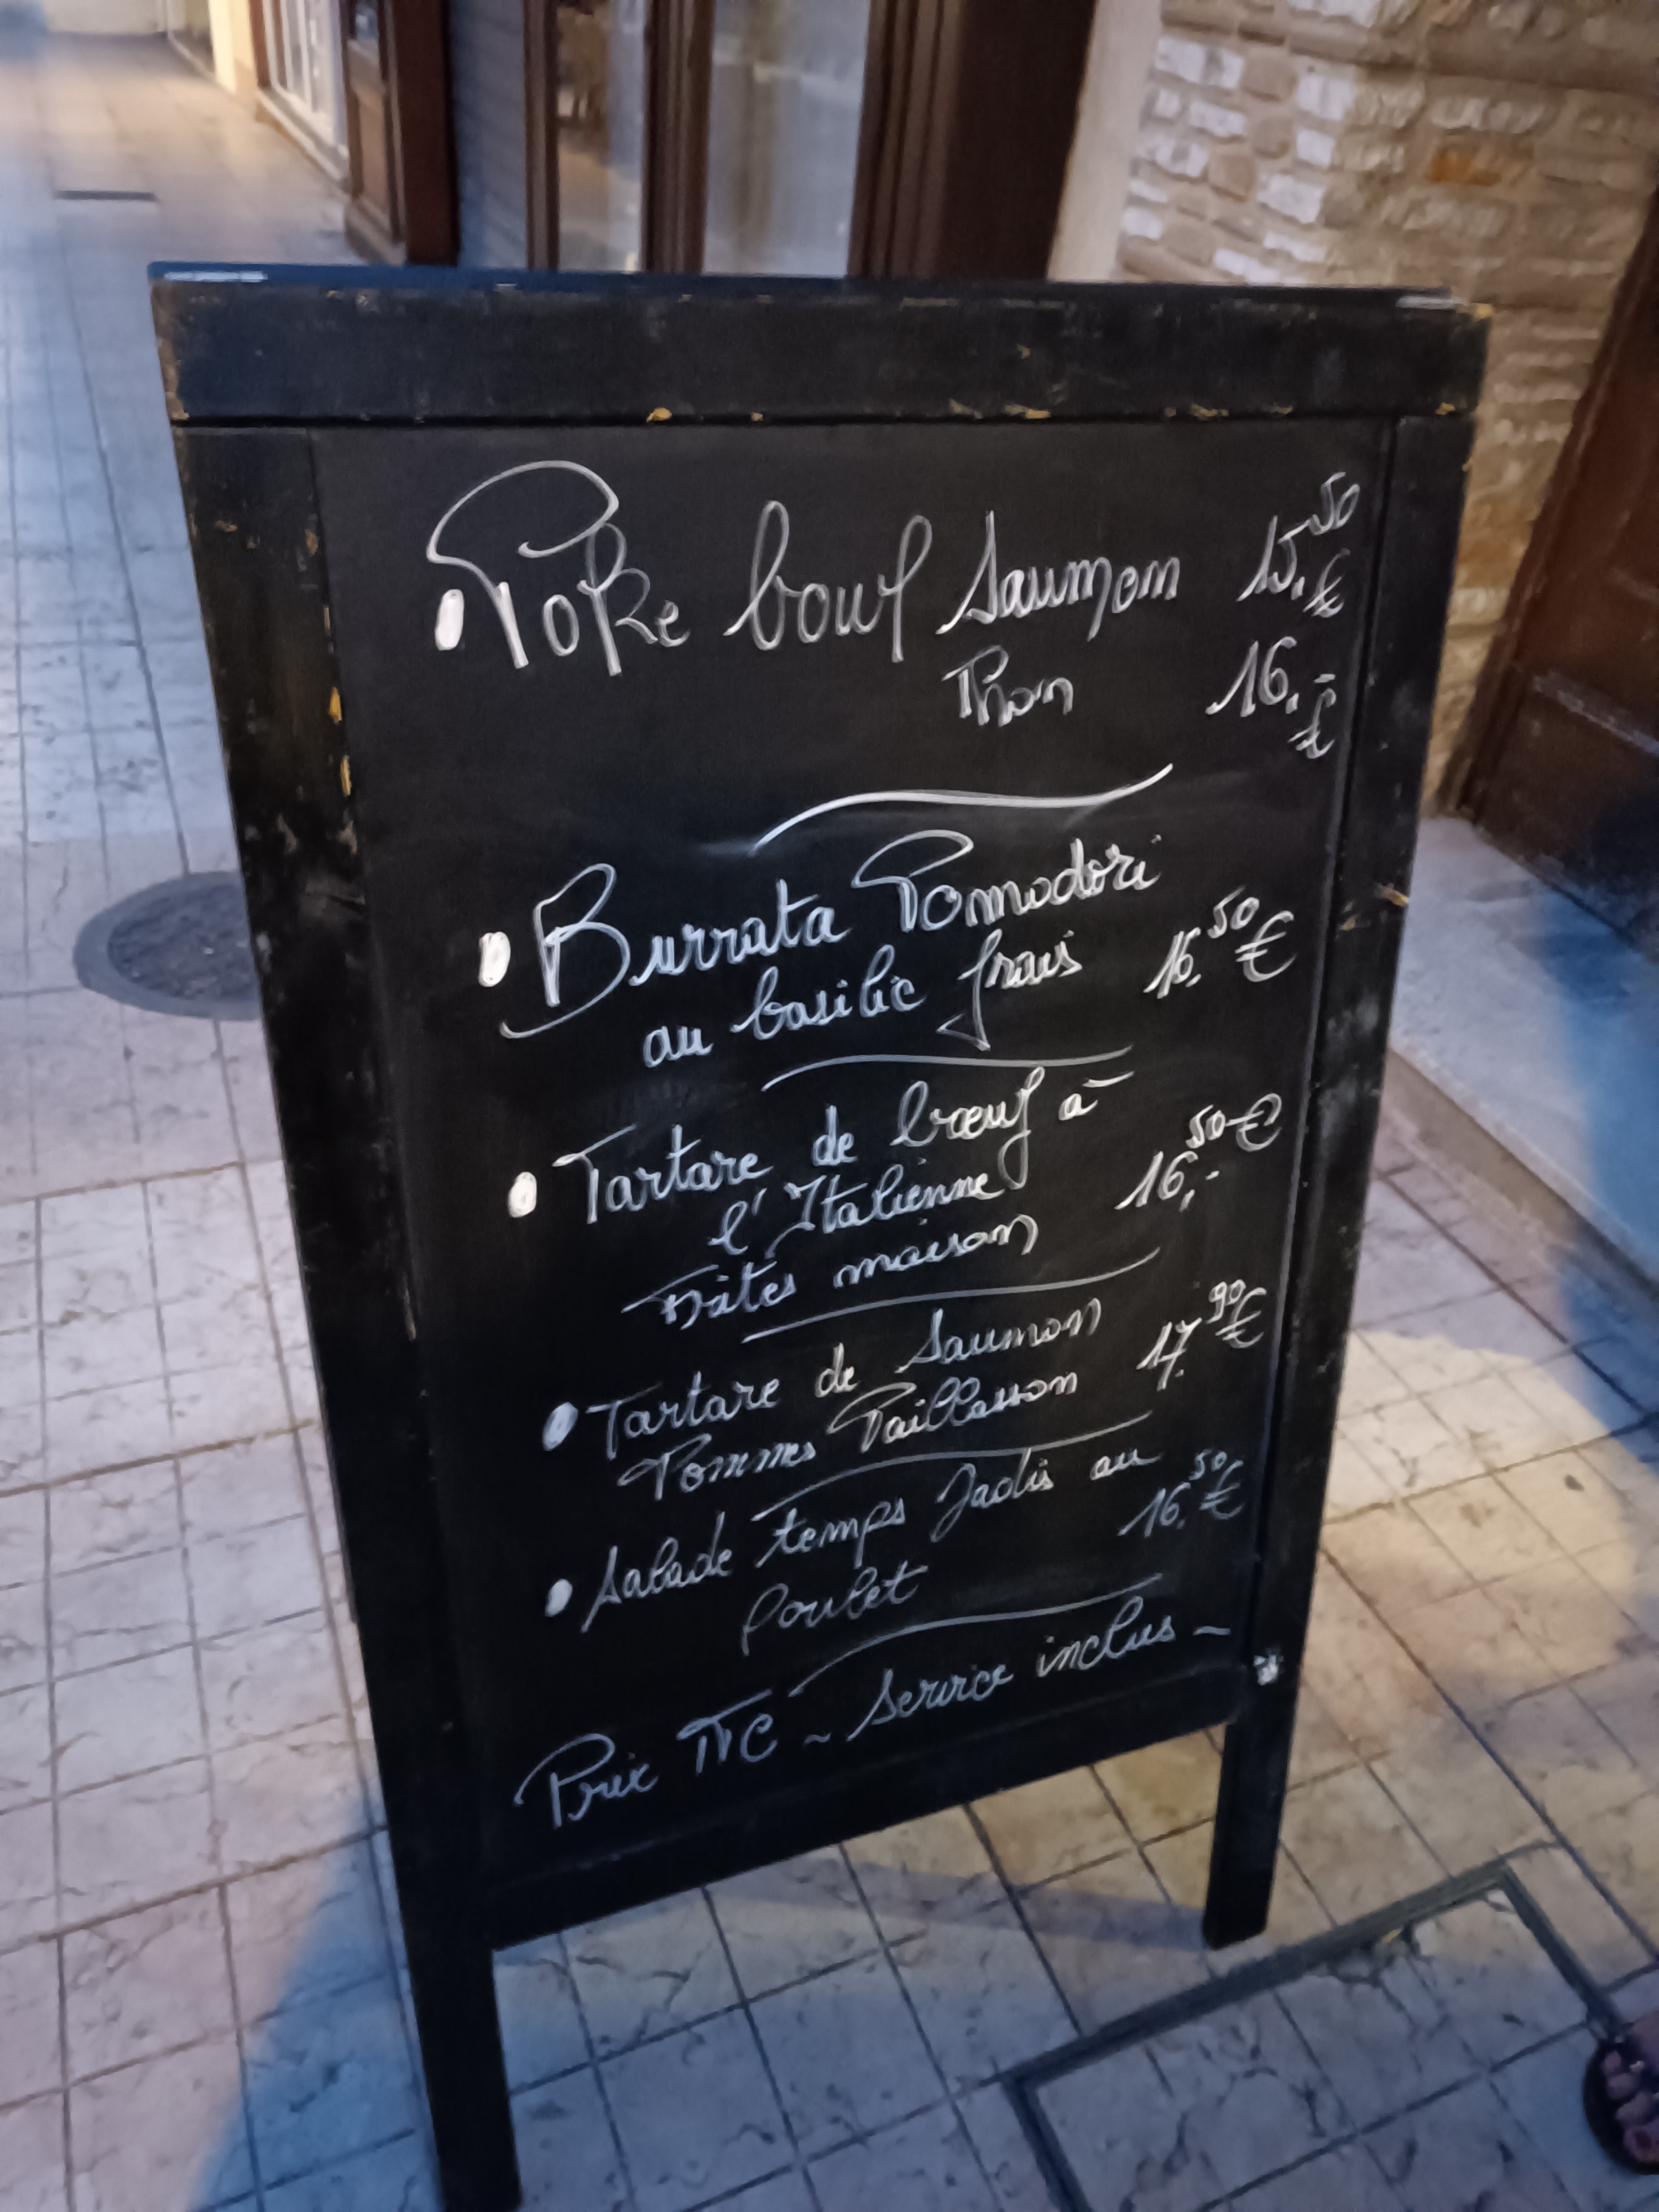 • Poke bowl Saumon 15,50 €
Thon 16,- €
• Burrata Pomodori
au basilic frais 16,50 €
• Tartare de bœuf à
l'Italienne 16,50 €
Pâtes maison
• Tartare de Saumon 17,90 €
Pommes Paillasson
• Salade temps Jadis au
poulet 16,50 €
Prix TTC ~ Service inclus ~